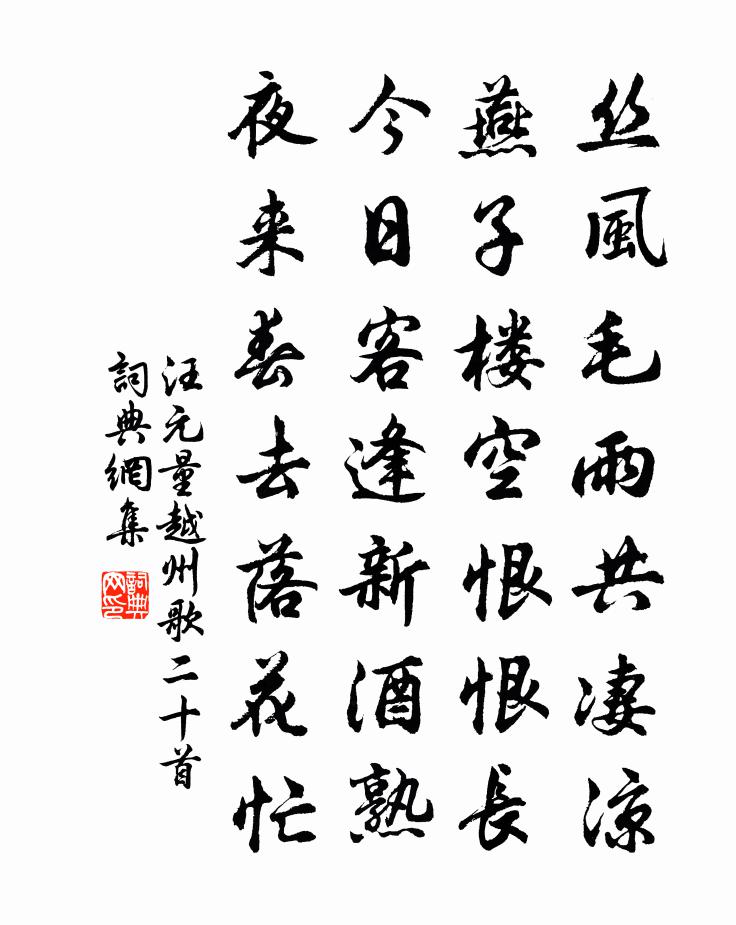 丝風毛雨共凄涼
燕子楼空恨恨長
今日客逢新酒熟
夜来春去落花忙
汪元量越州歌二十首
詞典網集
詞典网印